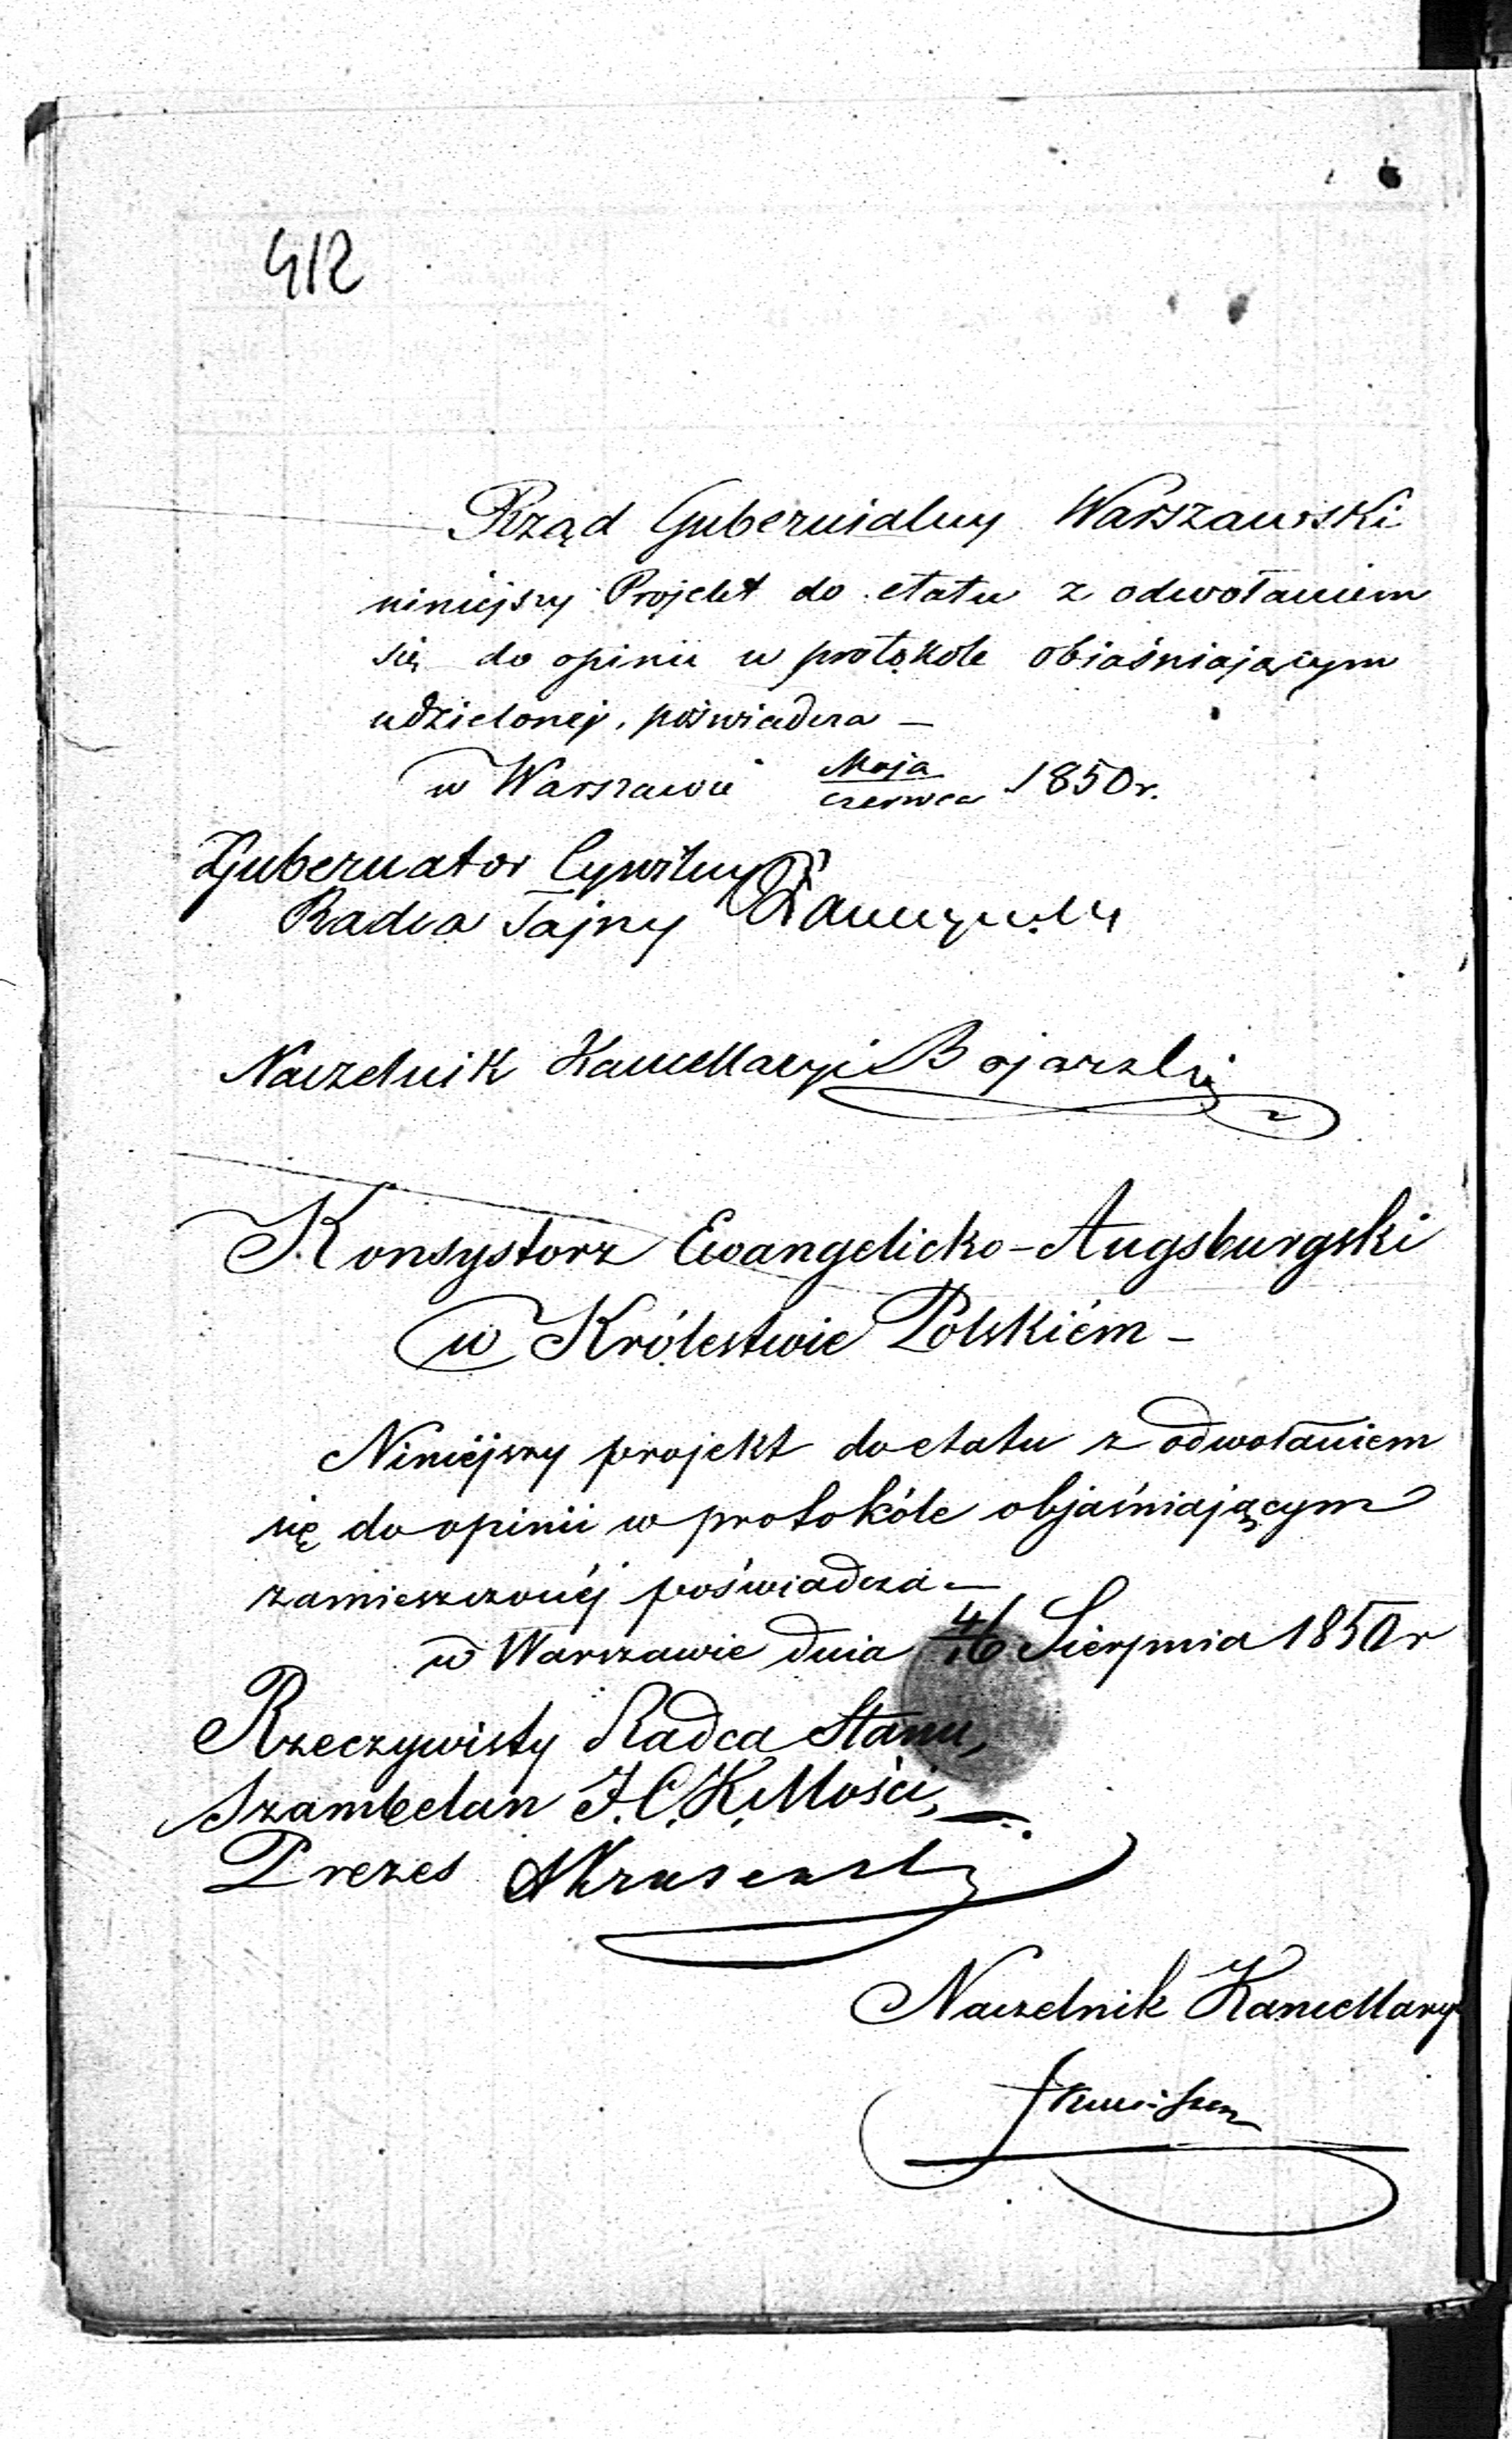 412
Rząd Gubernialny Warszawski
niniejszy Projekt do etatu z odwołaniem
się do opinii w protokole obiaśniającym
udzielonej, poświadcza —
w Warszawie Maja/Czerwca 1850 r.
Gubernator Cywilny
Radca Tajny
Naczelnik Kancellaryi Bojarski
Konsystorz Ewangelicko-Augsburgski
w Królestwie Polskiém —
Niniéjszy projekt do etatu z odwołaniem
się do opinii w protokóle objaśniającym
zamieszczonéj poświadcza —
w Warszawie dnia 4/16 Sierpnia 1850 r
Rzeczywisty Radca Stanu,
Szambelan J.C.K. Mości,
Prezes
Naczelnik Kancellaryi